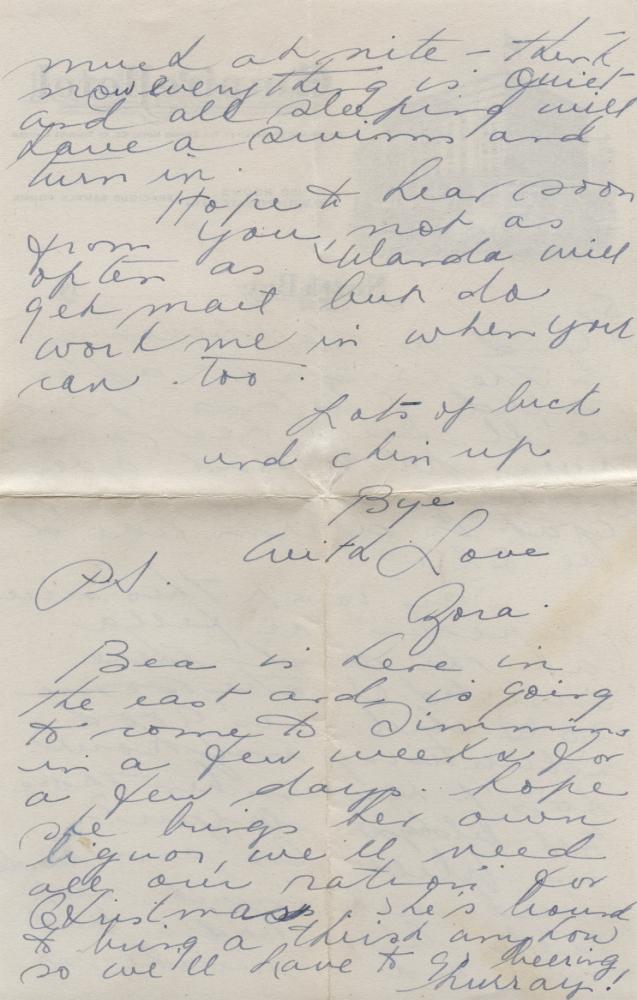 mued at nite – think
now everything is quiet
and all sleeping will
have a swim and
turn in.
Hope to hear soon
from you, not as
often as Wanda will
get mail but do
work me in when you
can too.
Lots of luck
and chin up
Bye
With Love
P.S.
Zora.
Bea is here in
the east and is going
to come to Timmins
in a few weeks for
a few days. hope
she brings her own
liquor, we'll need
all our ration for
Christmas. She's bound
to bring a thirst anyhow
so we'll have to go beering
Hurray!